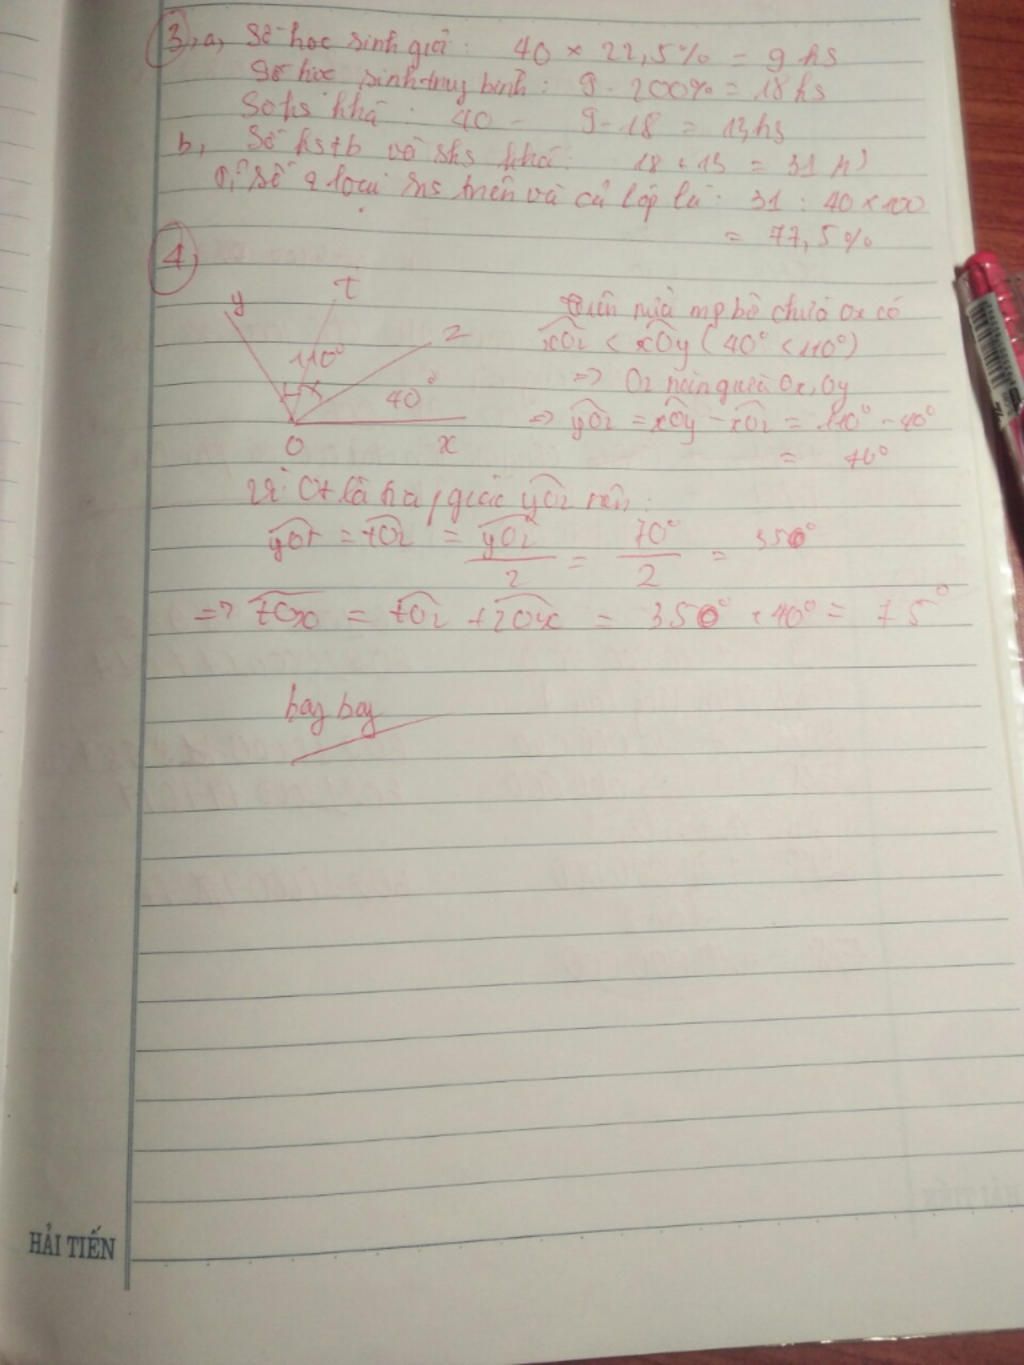 3, a, Số học sinh giỏi : 40 × 22,5% = 9 hs
Số học sinh trung bình : 9 . 200% = 18 hs
Số hs khá : 40 - 9 - 18 = 13 hs
b, Số hs tb và shs khá : 18 + 13 = 31
Số 2 loại hs trên và cả lớp là : 31 : 40 × 100
= 77,5%
4,
y t z
110°
40°
O x
Trên nửa mp bờ chứa Ox có
xOz < xOy ( 40° < 110° )
=> Oz nằm giữa Ox, Oy
=> yOz = xOy - xOz = 110° - 40°
= 70°
Vì Ot là tia p/giác yOz nên :
yOt = tOz = yOz/2 = 70°/2 = 350°
=> tOx = tOz + zOx = 350° + 40° = 75°
bay bay
HẢI TIẾN